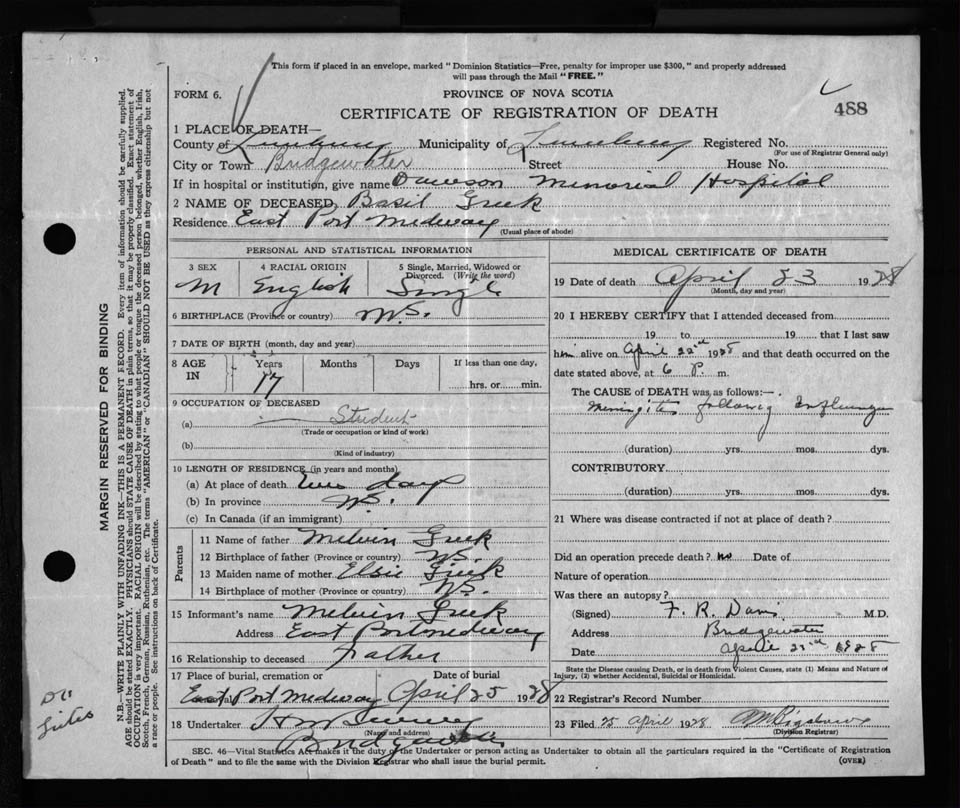 This form if placed in an envelope, marked " Dominion Statistics—Free, penalty for improper use $300," and properly addressed
will pass through the Mail "FREE."
FORM 6.
PROVINCE OF NOVA SCOTIA
488
CERTIFICATE OF REGISTRATION OF DEATH
1 PLACE OF DEATH—
County of Lunenburg Municipality of Lunenburg Registered No.
(For use of Registrar General only)
City or Town Bridgewater Street House No.
If in hospital or institution, give name Dawson Memorial Hospital
2 NAME OF DECEASED Basil Greek
Residence East Port Medway
(Usual place of abode)
PERSONAL AND STATISTICAL INFORMATION
3 SEX 4 RACIAL ORIGIN 5 Single, Married, Widowed or
Divorced. (Write the word)
M English Single
6 BIRTHPLACE (Province or country) N.S.
7 DATE OF BIRTH (month, day and year)
8 AGE IN Years Months Days If less than one day,
17 hrs. or min.
9 OCCUPATION OF DECEASED
(a) Student
(Trade or occupation or kind of work)
(b)
(Kind of industry)
10 LENGTH OF RESIDENCE (in years and months)
(a) At place of death days
(b) In province N.S.
(c) In Canada (if an immigrant)
Parents
11 Name of father Melvin Greek
12 Birthplace of father (Province or country) N.S.
13 Maiden name of mother Elsie Greek
14 Birthplace of mother (Province or country) N.S.
15 Informant's name Melvin Greek
Address East Port Medway
16 Relationship to deceased Father
17 Place of burial, cremation or Date of burial
East Port Medway April 25 1928
18 Undertaker
(Name and address)
Bridgewater
MEDICAL CERTIFICATE OF DEATH
19 Date of death April 23 1928
(Month, day and year)
20 I HEREBY CERTIFY that I attended deceased from
19 to 19 that I last saw
him alive on April 22nd 1928 and that death occurred on the
date stated above, at 6 P. m.
The CAUSE of DEATH was as follows:—
Meningitis following Influenza
(duration) yrs. mos. dys.
CONTRIBUTORY
(duration) yrs. mos. dys.
21 Where was disease contracted if not at place of death?
Did an operation precede death? no Date of
Nature of operation
Was there an autopsy?
(Signed) F. R. Davis M.D.
Address Bridgewater
Date April 1928
State the Disease causing Death, or in death from Violent Causes, state (1) Means and Nature of
Injury, (2) whether Accidental, Suicidal or Homicidal.
22 Registrar's Record Number
23 Filed 25 April 1928
(Division Registrar)
SEC. 46—Vital Statistics Act makes it the duty of the Undertaker or person acting as Undertaker to obtain all the particulars required in the "Certificate of Registration
of Death" and to file the same with the Division Registrar who shall issue the burial permit.
(OVER)
MARGIN RESERVED FOR BINDING
N.B.—WRITE PLAINLY WITH UNFADING INK—THIS IS A PERMANENT RECORD. Every item of information should be carefully supplied.
AGE should be stated EXACTLY. PHYSICIANS should STATE CAUSE OF DEATH in plain terms, so that it may be properly classified. Exact statement of
OCCUPATION is very important. RACIAL ORIGIN will be described by stating to what people or tongue the deceased person belonged, whether English, Irish,
Scotch, French, German, Russian, Ruthenian, etc. The terms "AMERICAN" or "CANADIAN" SHOULD NOT BE USED as they express citizenship but not
a race or people. See instructions on back of Certificate.